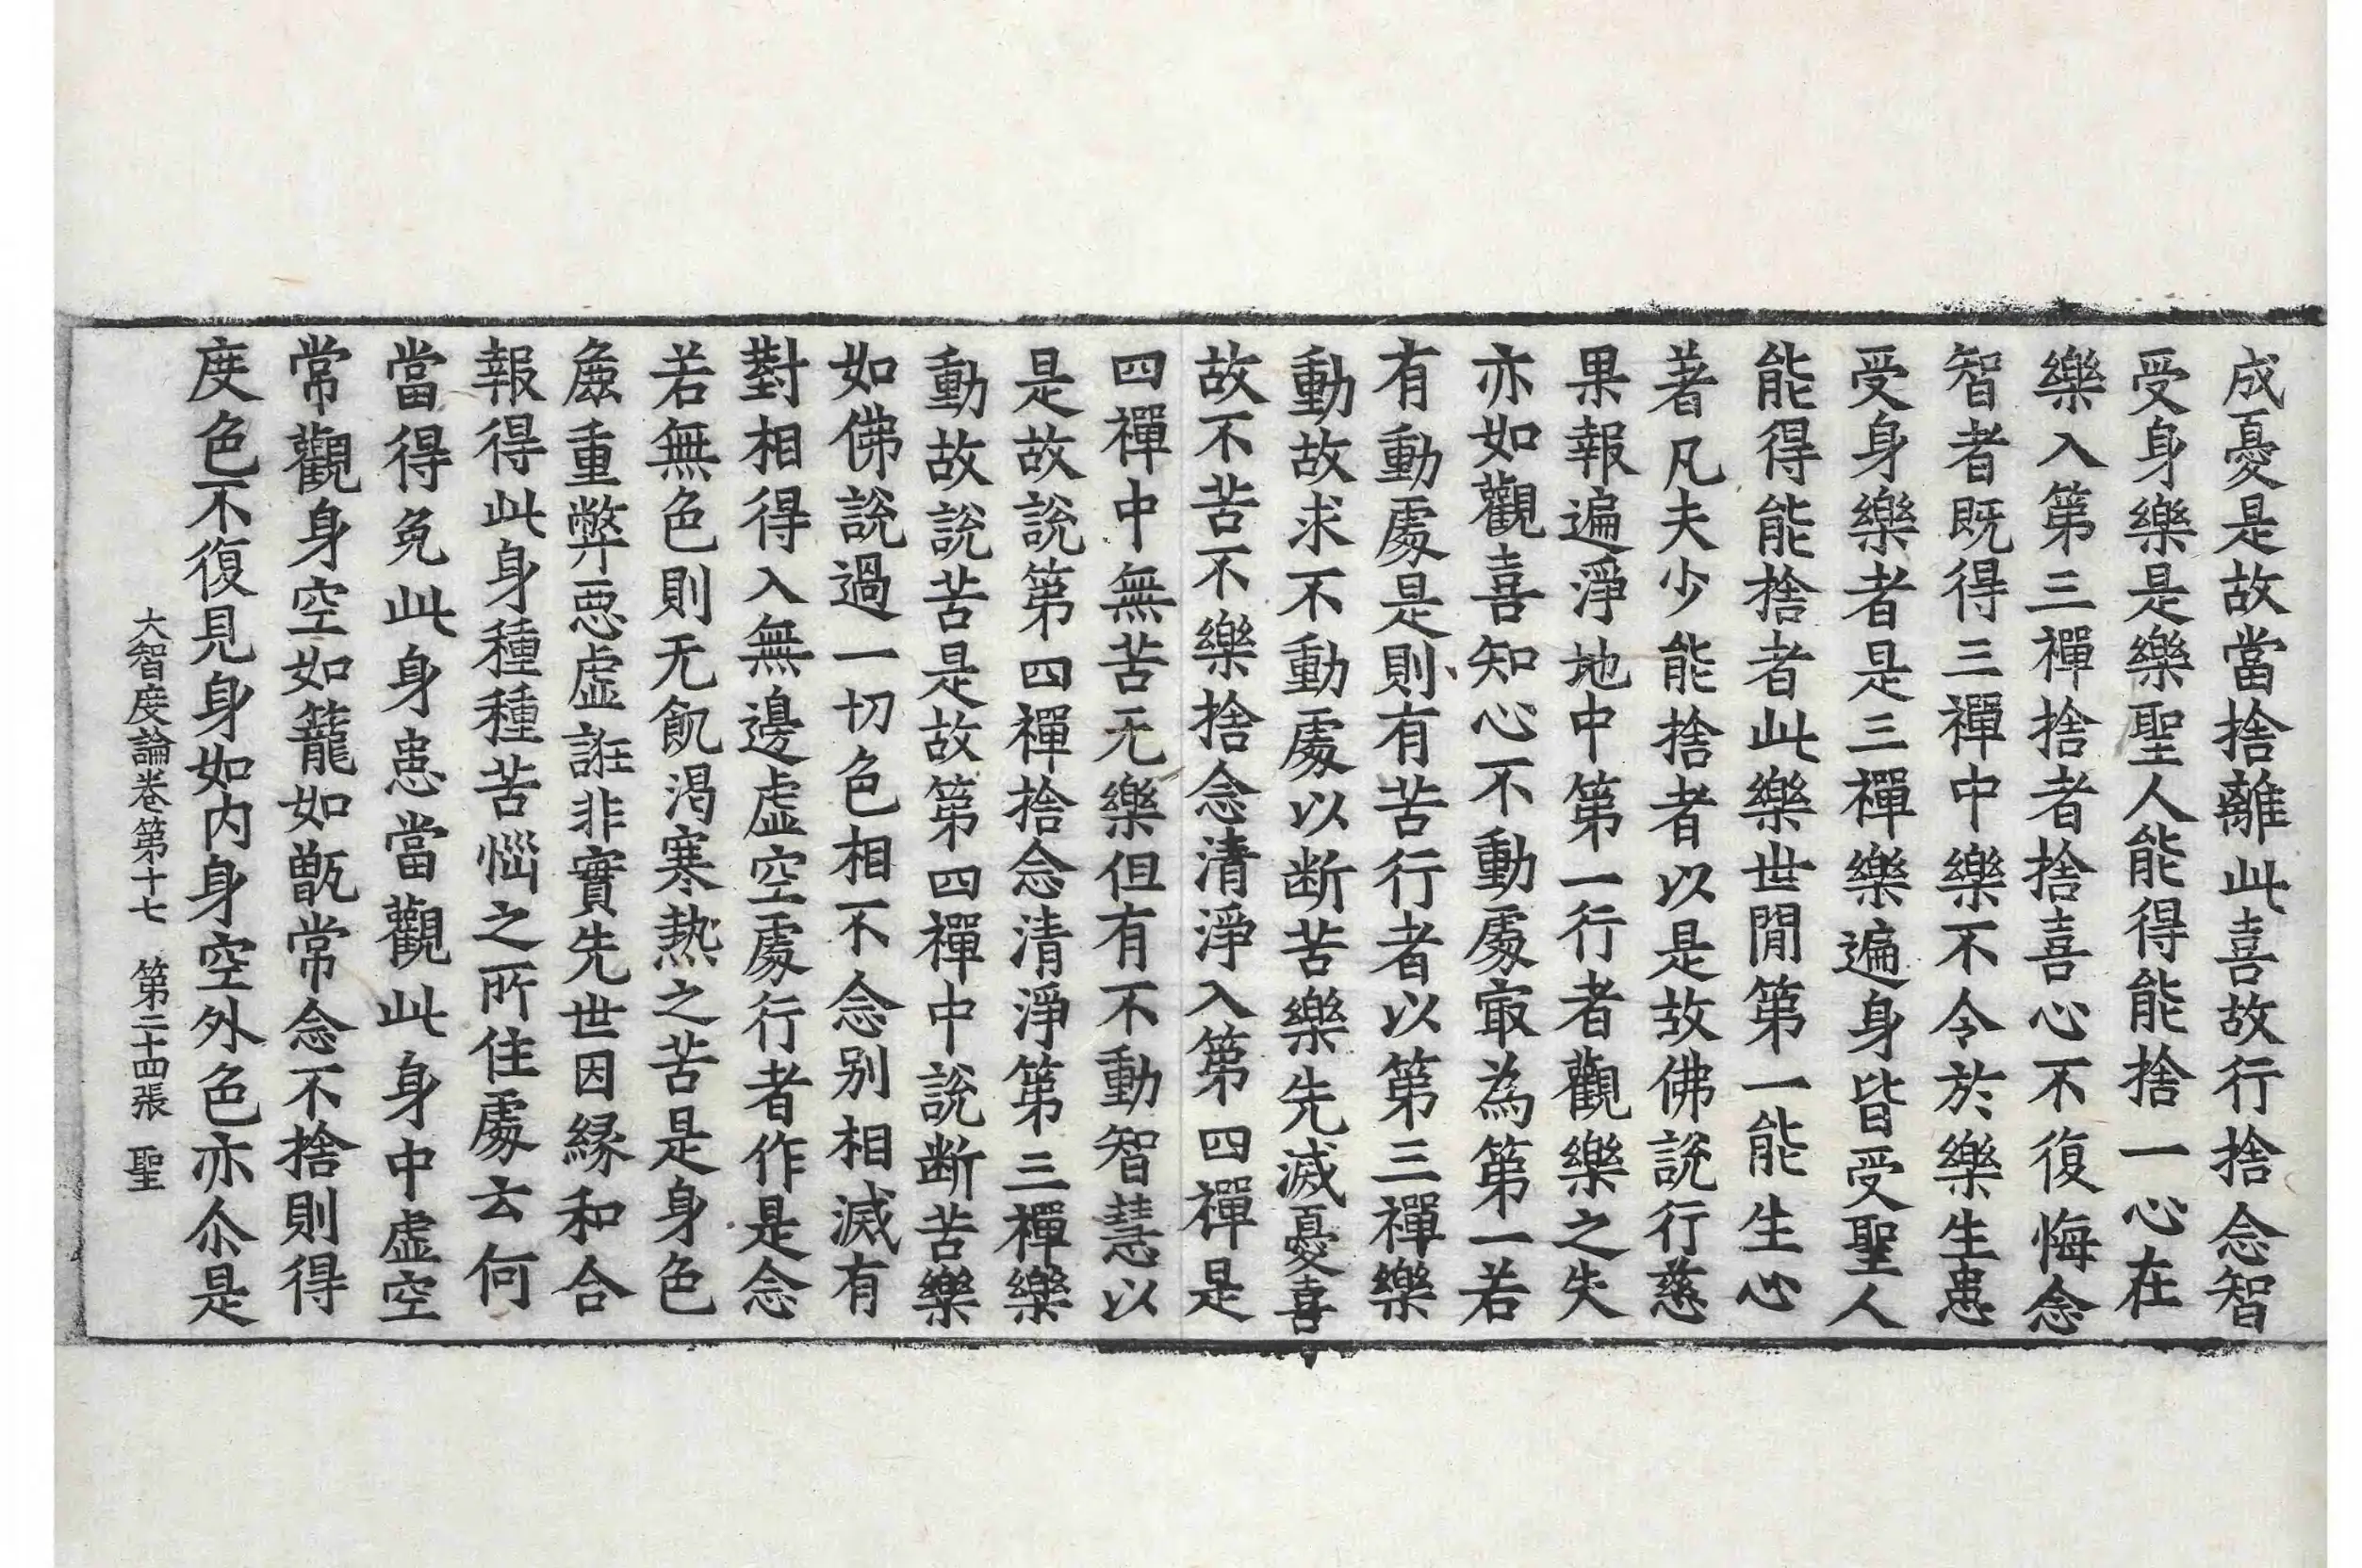 成憂是故當捨離此喜故行捨念智
受身樂是樂聖人能得能捨一心在
樂入第三禪捨者捨喜心不復悔念
智者既得三禪中樂不令於樂生患
受身樂者是三禪樂遍身皆受聖人
能得能捨者此樂世間第一能生心
著凡夫少能捨者以是故佛說行慈
果報遍淨地中第一行者觀樂之失
亦如觀喜知心不動處寂為第一若
有動處是則有苦行者以第三禪樂
動故求不動處以断苦樂先滅憂喜
故不苦不樂捨念清淨入第四禪是
四禪中無苦无樂但有不動智慧以
是故說第四禪捨念清淨第三禪樂
動故說苦是故第四禪中說断苦樂
如佛說過一切色相不念别相滅有
對相得入無邊虛空處行者作是念
若無色則无飢渴寒熱之苦是身色
麁重弊惡虛誑非實先世因緣和合
報得此身種種苦惱之所住處云何
當得免此身患當觀此身中虛空
常觀身空如籠如甑常念不捨則得
度色不復見身如内身空外色亦尒是
大智度論卷第十七 第二十四張 聖